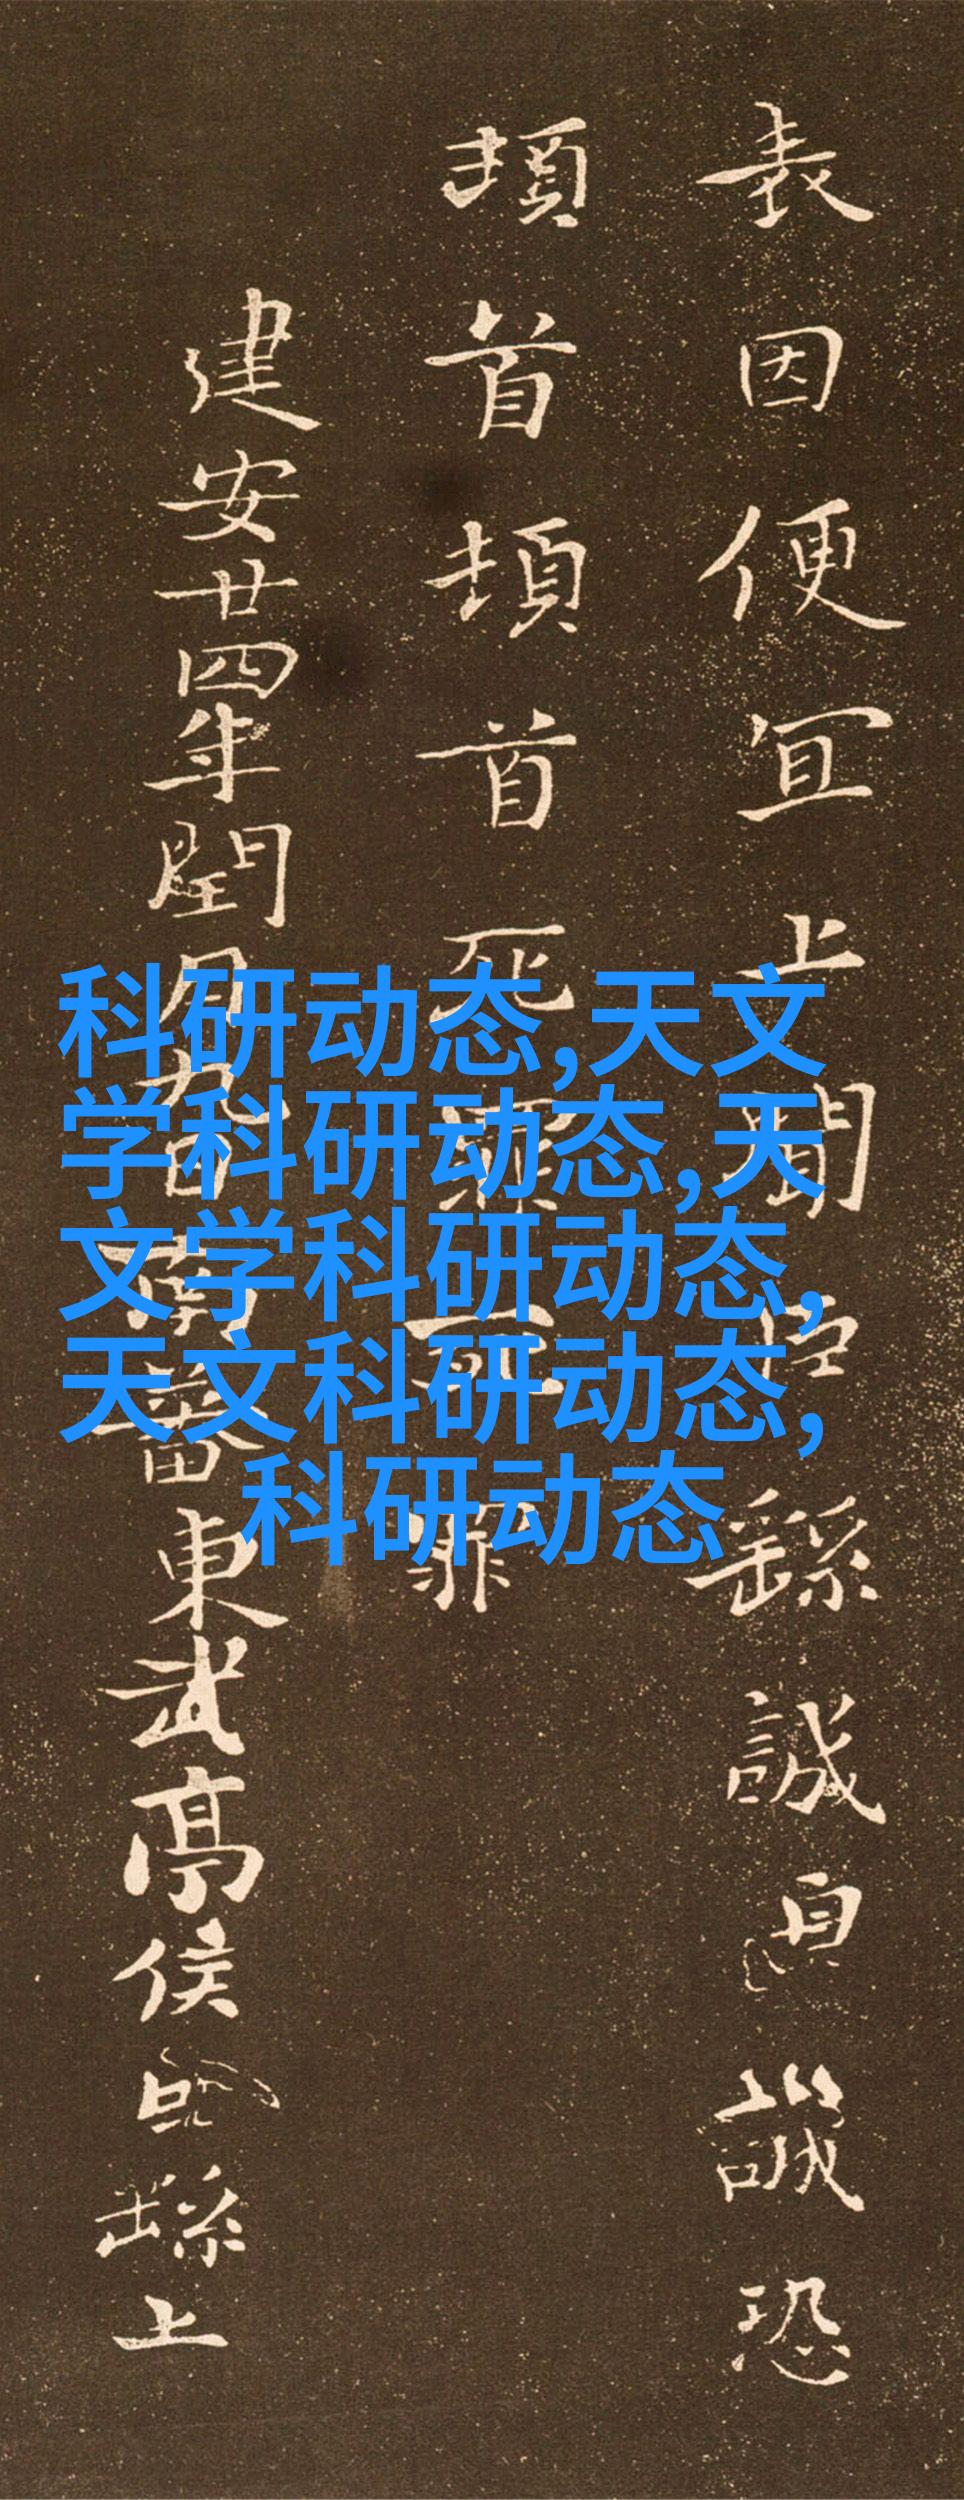 表因便宜上聞臣繇誠惶誠恐
頓首頓首死罪死罪
建安廿四年閏月九日南蕃東武亭侯臣繇上
科研动态,天文
学科研动态,天
文学科研动态,
天文科研动态,
科研动态